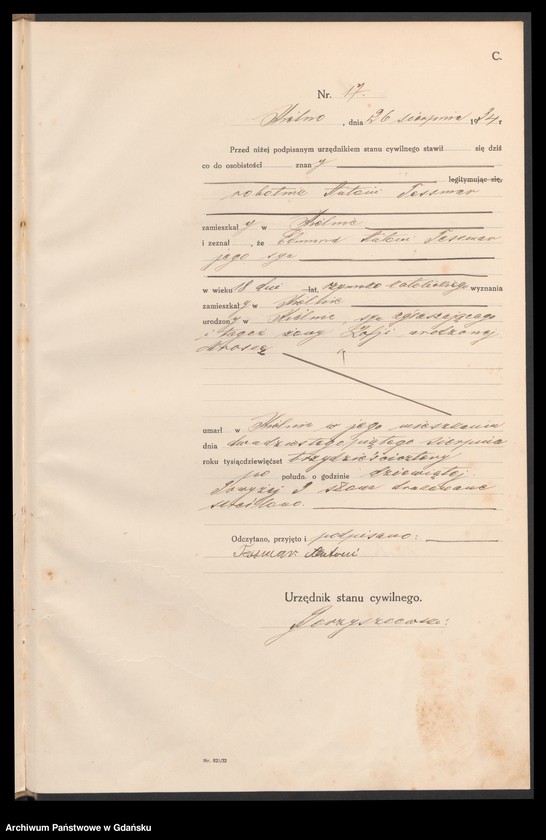 C.
Nr. 17.
, dnia 26 sierpnia 1934 r
Przed niżej podpisanym urzędnikiem stanu cywilnego stawił się dziś
co do osobistości znany
legitymując się,
robotnik Antoni Tessmar
zamieszkały w
i zeznał , że Edmund Antoni Tessmar
jego syn
w wieku 18 dni lat, rzymsko katolickiego wyznania
zamieszkały w
urodzony w , syn zgłaszającego
i tegoż żony Zofji urodzonej
umarł w w jego mieszkaniu
dnia dwudziestego piątego sierpnia
roku tysiącdziewięćset trzydzieściczwartego
po połudn. o godzinie dziewiątej
Powyżej 3 słowa drukowane
skreślono.
Odczytano, przyjęto i podpisano:
Tesmar Antoni
Urzędnik stanu cywilnego.
Nr. 821/32
Archiwum Państwowe w Gdańsku